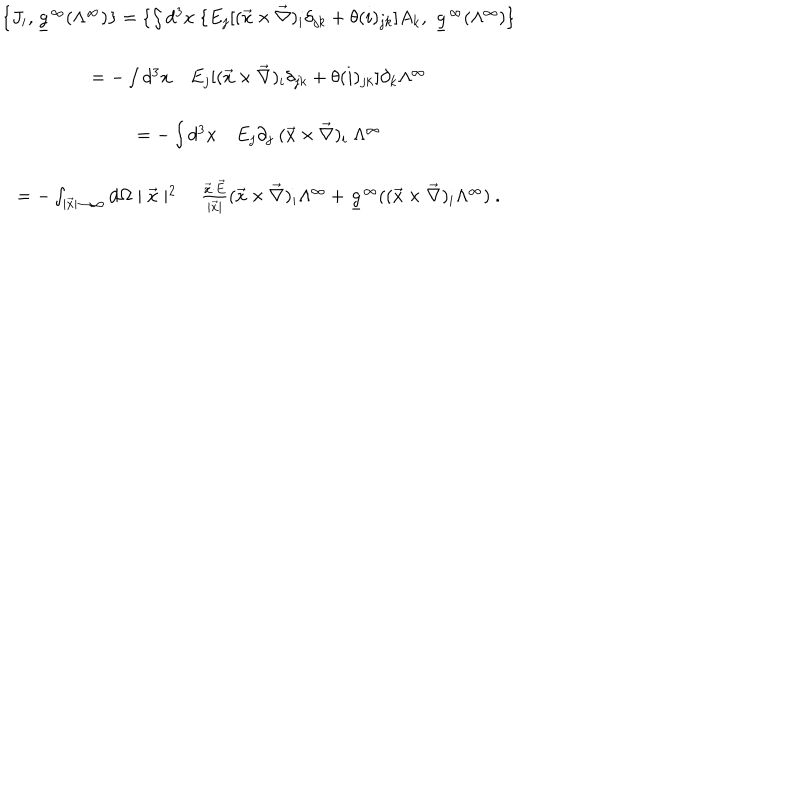 {J_i, g̲^∞(Λ^∞)} = {∫ d^3x {E_j[(x⃗ × ∇⃗)_i δ_{jk} + θ(i)_{jk}]A_k, g̲^∞(Λ^∞)}
= − ∫ d^3x E_j[(x⃗ × ∇⃗)_i δ_{jk} + θ(i)_{jk}]∂_k Λ^∞
= − ∫ d^3x E_j ∂_j (x⃗ × ∇⃗)_i Λ^∞
= − ∫_{|x⃗|→∞} dΩ | x⃗ |^2 \frac{x⃗ E⃗}{|x⃗|} (x⃗ × ∇⃗)_i Λ^∞ + g̲^∞((x⃗ × ∇⃗)_i Λ^∞) .